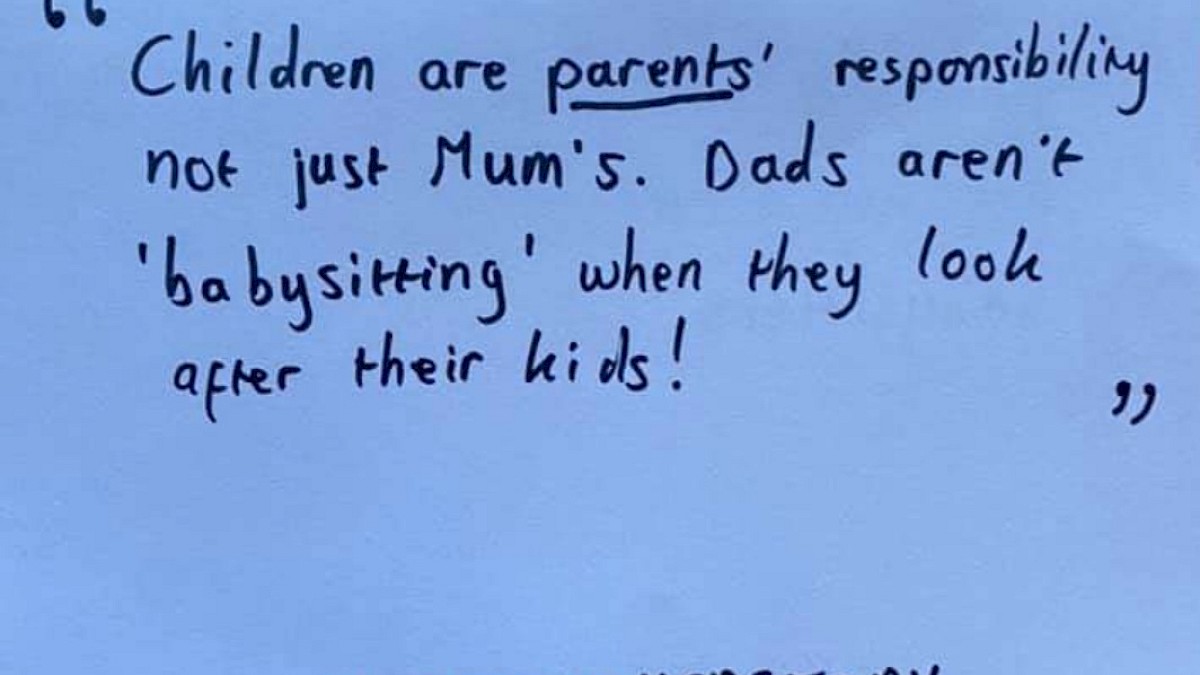 “
Children are parents' responsibility
not just Mum's. Dads aren't
'babysitting' when they look
after their kids!
”